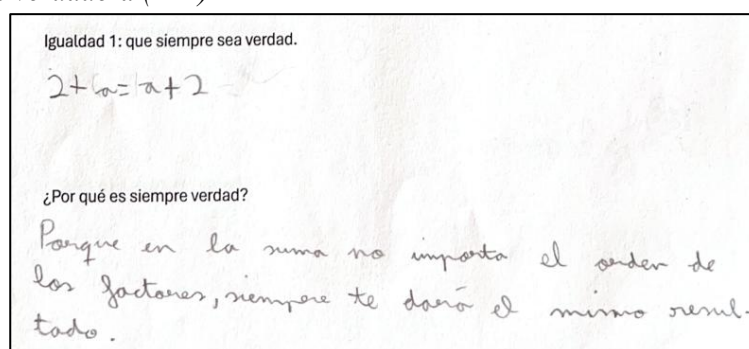 Igualdad 1: que siempre sea verdad.
2+a=a+2
¿Por qué es siempre verdad?
Porque en la suma no importa el orden de
los factores, siempre te dará el mismo resul-
tado.